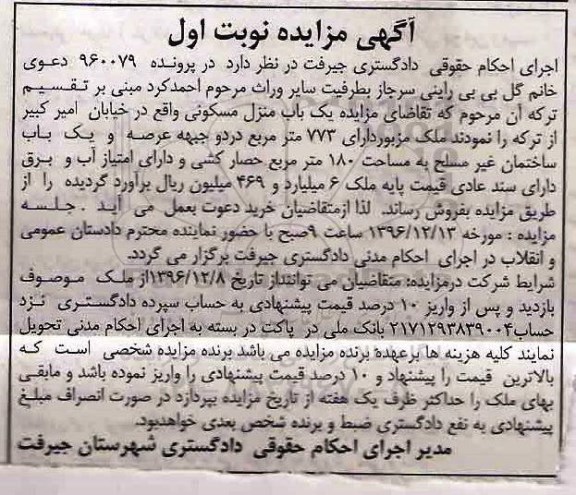 آگهی مزایده نوبت اول
اجرای احکام حقوقی دادگستری جیرفت در نظر دارد در پرونده ۹۶۰۰۷۹ دعوی
خانم گل بی بی راینی سرجاز بطرفیت سایر وراث مرحوم احمدکرد مبنی بر تقسیم
ترکه آن مرحوم که تقاضای مزایده یک باب منزل مسکونی واقع در خیابان امیر کبیر
از ترکه را نمودند ملک مزبوردارای ۷۷۳ متر مربع دردو جبهه عرصه و یک باب
ساختمان غیر مسلح به مساحت ۱۸۰ متر مربع حصار کشی و دارای امتیاز آب و برق
دارای سند عادی قیمت پایه ملک ۶ میلیارد و ۴۶۹ میلیون ریال برآورد گردیده را از
طریق مزایده بفروش رساند. لذا ازمتقاضیان خرید دعوت بعمل می آید . جلسه
مزایده : مورخه ۱۳۹۶/۱۲/۱۳ ساعت ۹صبح با حضور نماینده محترم دادستان عمومی
و انقلاب در اجرای احکام مدنی دادگستری جیرفت برگزار می گردد.
شرایط شرکت درمزایده: متقاضیان می توانندتاز تاریخ ۱۳۹۶/۱۲/۸از ملک موصوف
بازدید و پس از واریز ۱۰ درصد قیمت پیشنهادی به حساب سپرده دادگستری نزد
حساب۲۱۷۱۲۹۳۸۳۹۰۰۴ بانک ملی در پاکت در بسته به اجرای احکام مدنی تحویل
نمایند کلیه هزینه ها برعهده برنده مزایده می باشد برنده مزایده شخصی است که
بالاترین قیمت را پیشنهاد و ۱۰ درصد قیمت پیشنهادی را واریز نموده باشد و مابقی
بهای ملک را حداکثر ظرف یک هفته از تاریخ مزایده بپردازد در صورت انصراف مبلغ
پیشنهادی به نفع دادگستری ضبط و برنده شخص بعدی خواهدبود.
مدیر اجرای احکام حقوقی دادگستری شهرستان جیرفت